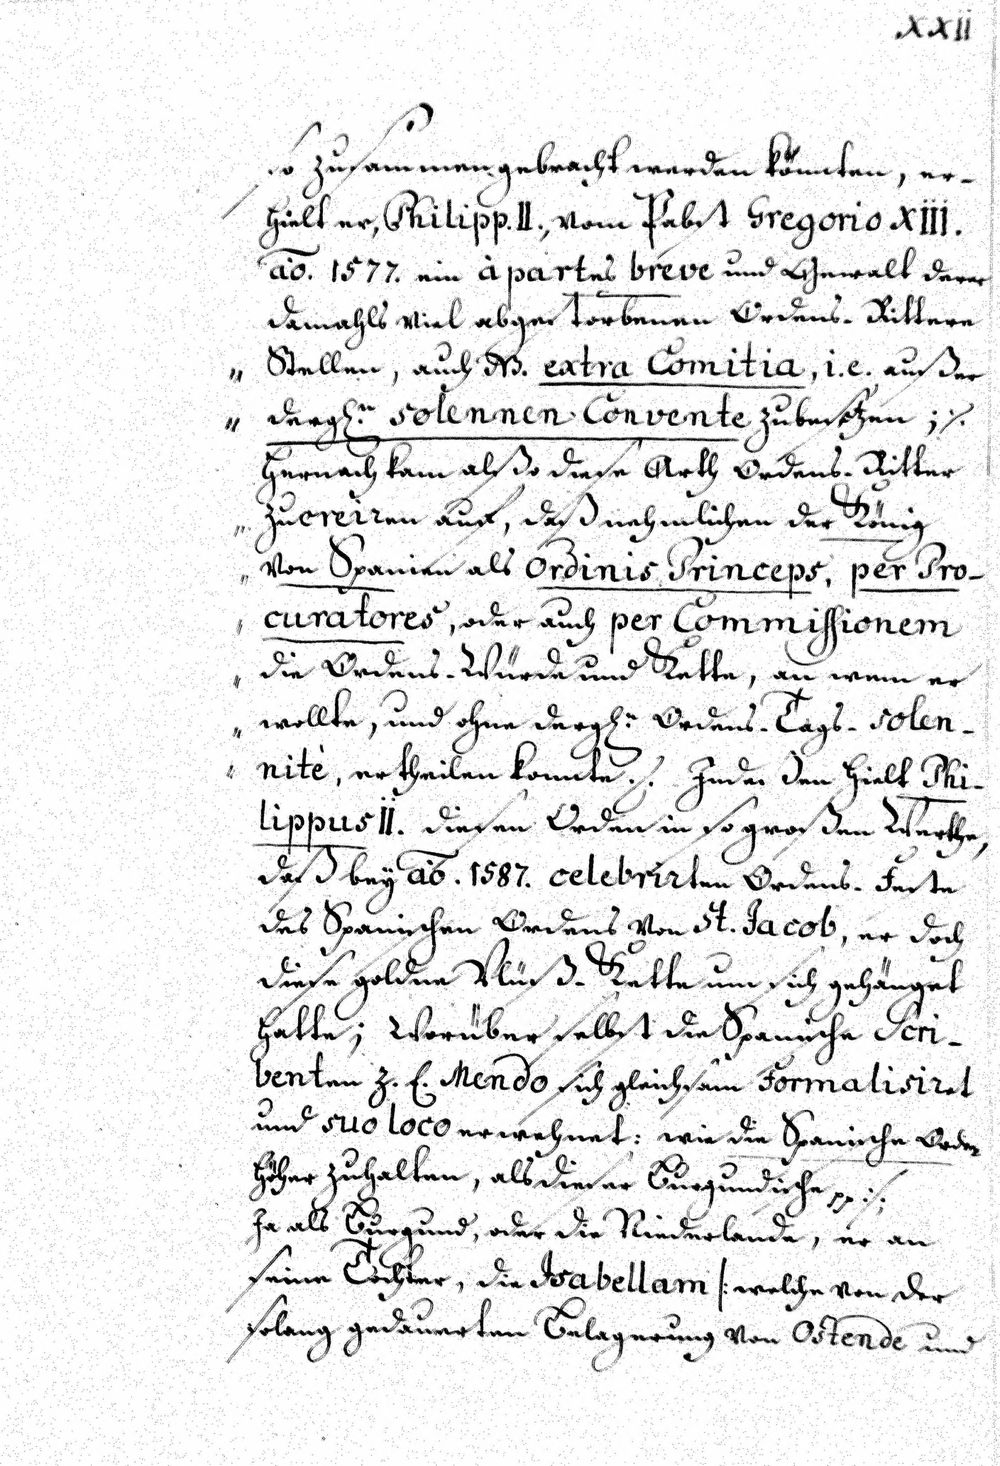 XXII
so zusammengebracht werden könnten, er-
hielt er, Philipp. II., vom Pabst Gregorio XIII.
aō. 1577. ein à partes breve und Gewalt derer
damahls viel abgestorbenen Ordens-Rittere
" Stellen, auch NB. extra Comitia, i.e. außer
" dergl:n solennen Convente zubesetzen ; :/.
Hernach kam alßo diese Arth Ordens-Ritter
" zu creiren auf, daß nehmlichen der König
" von Spanien als Ordinis Princeps, per Pro-
" curatores, oder auch per Commissionem
" die Ordens-Würde und Kette, an wem er
" wollte, und ohne dergl:n Ordens-Tags-solen-
" nité, ertheilen konnte. :/. Indeßen hielt Phi-
lippus II. diesen Orden in so großen Werthe,
daß bey aō. 1587. celebrirten Ordens-Feste
des Spanischen Ordens von St. Jacob, er doch
diese goldne Vlüß-Kette um sich gehänget
hatte; Worüber selbst die Spanische Scri-
benten z. E. Mendo sich gleichsam formalisiret
und suo loco erwehnet: wie die Spanische Orden
höher zuhalten, als dieser Burgundische pp :/:
Ja als Burgund, oder die Niederlande, er an
seine Tochter, die Isabellam /: welche von der
solang gedauerten Belagerung von Ostende und